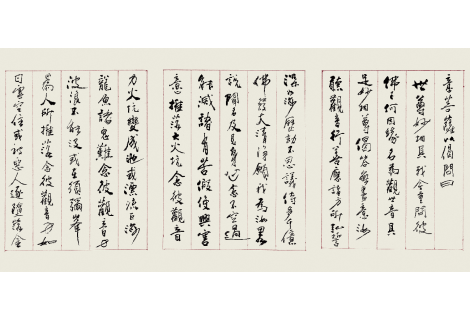 意菩薩以偈問曰
世尊妙相具我今重問彼
佛子何因緣名為觀世音具
足妙相尊偈答無盡意汝
聽觀音行善應諸方所弘誓
深如海歷劫不思議侍多千億
佛發大清淨願我為汝略
說聞名及見身心念不空過
能滅諸有苦假使興害
意推落大火坑念彼觀音
力火坑變成池或漂流巨海
龍魚諸鬼難念彼觀音力
波浪不能沒或在須彌峰
為人所推墮念彼觀音力如
日虛空住或被惡人逐墮落金